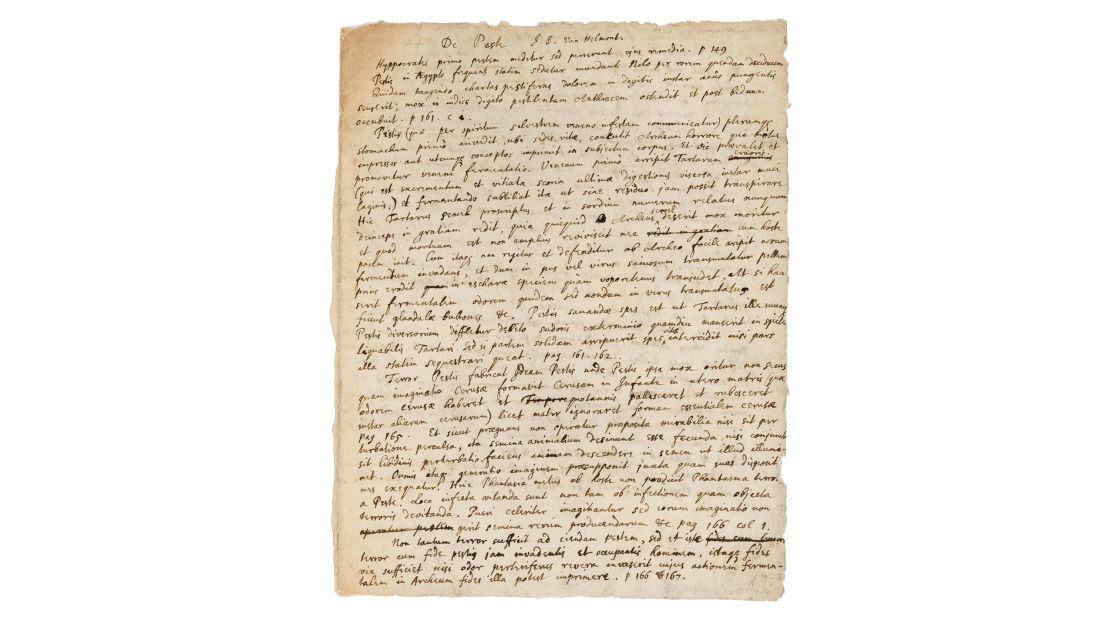 De Peste J. B. Van Helmont.
Hyppocrates primo pestem meditur sed perierunt ejus remedia. p 149
Pestis in Ægypto frequens statim sedatur inundante Nilo per rorem quendam deciduum
Quidam tangendo chartas pestiferas dolorem in digitis instar acus pungentis
senserit, mox in indice digito pestilentem Anthracem ostendit et post biduum
occubuit. p 161. c
Pestis (quæ per spiritum silvestrem veneno infectum communicatur) plerunq
stomachum primò invadit, ubi sedes vitæ, concutit Archæum horrore qui
impressos aut utcunq conceptos imprimit in subjectum corpus. Et sic prævalet et
promovetur veneni fermentatio. Venenum primò arripit Tartarum cruoris.
(qui est excrementum et vitiata scoria ultimæ digestionis viscosa instar muci
) et fermentando subtiliat ita ut sine residuo jam possit transpirare
Hic Tartarus semel proscriptus et in sordium numerum relatus nunquam
deinceps in gratiam redit, quia quicquid Archeus deserit mox moritur
et quod mortuum est non amplius reviviscit nec redit in gratiam cum hoste
pacem init. Cum itaq non regitur et defenditur ab Archeo facile arripit novum
fermentum invadens, et dum in pus vel virus saniosum transmutatur pellem
prius erodit quam in escharæ speciem quam vaporibus transudet. At si hau
serit fermentalem odorem quidem sed nondum in virus transmutatus est
fiunt glandulæ bubones &c. Pestis sanandæ spes est ut Tartarus ille
Pestis diversorium diffletur debito sudoris exterminio quamdiu manserit in specie
liquabilis Tartari. sed si partem solidam arripuerit spes vitæ intercidit nisi pars
illa statim sequestrari queat. pag 161. 162.
Terror Pestis fabricat Ideam Pestis unde Pestis ipsa mox oritur non secus
quam imaginatio Cerusæ formavit Cerusam in Infante in utero matris (quæ
odorem cerusæ haberet et Tempore quotannis pallesceret et rubesceret
instar aliarum cerusarum) licet mater ignoraret formam essentialem cerusæ
pag 165. Et sicut prægnans non operatur proposita mirabilia nisi sit per
turbatione perculsa, ita semina animalium desinunt esse fecunda nisi conjuncta
sit libidinis perturbatio faciens animam descendere in semen ut illud illumi
net. Omnis itaq generatio imaginem præsupponit juxta quam suas disposit
nes exequatur. Hinc Phantasia metus ab hoste non producit Phantasma terro
a Peste. Loca infecta vitanda sunt non tam ob infectionem quam objecta
terroris devitanda. Pueri celeriter imaginantur sed eorum imaginatio non
gerit semina rerum producendarum &c pag 166 col 1.
Non tantum terror sufficit ad ciendam pestem, sed et iste fides cum
terror cum fide pestis jam invadentis et occupantis hominem, istaq fides
vix sufficiet nisi odor pestiferus revera invaserit cujus actionem fermen-
talem in Archeum fides illa potest imprimere. p 166 & 167.